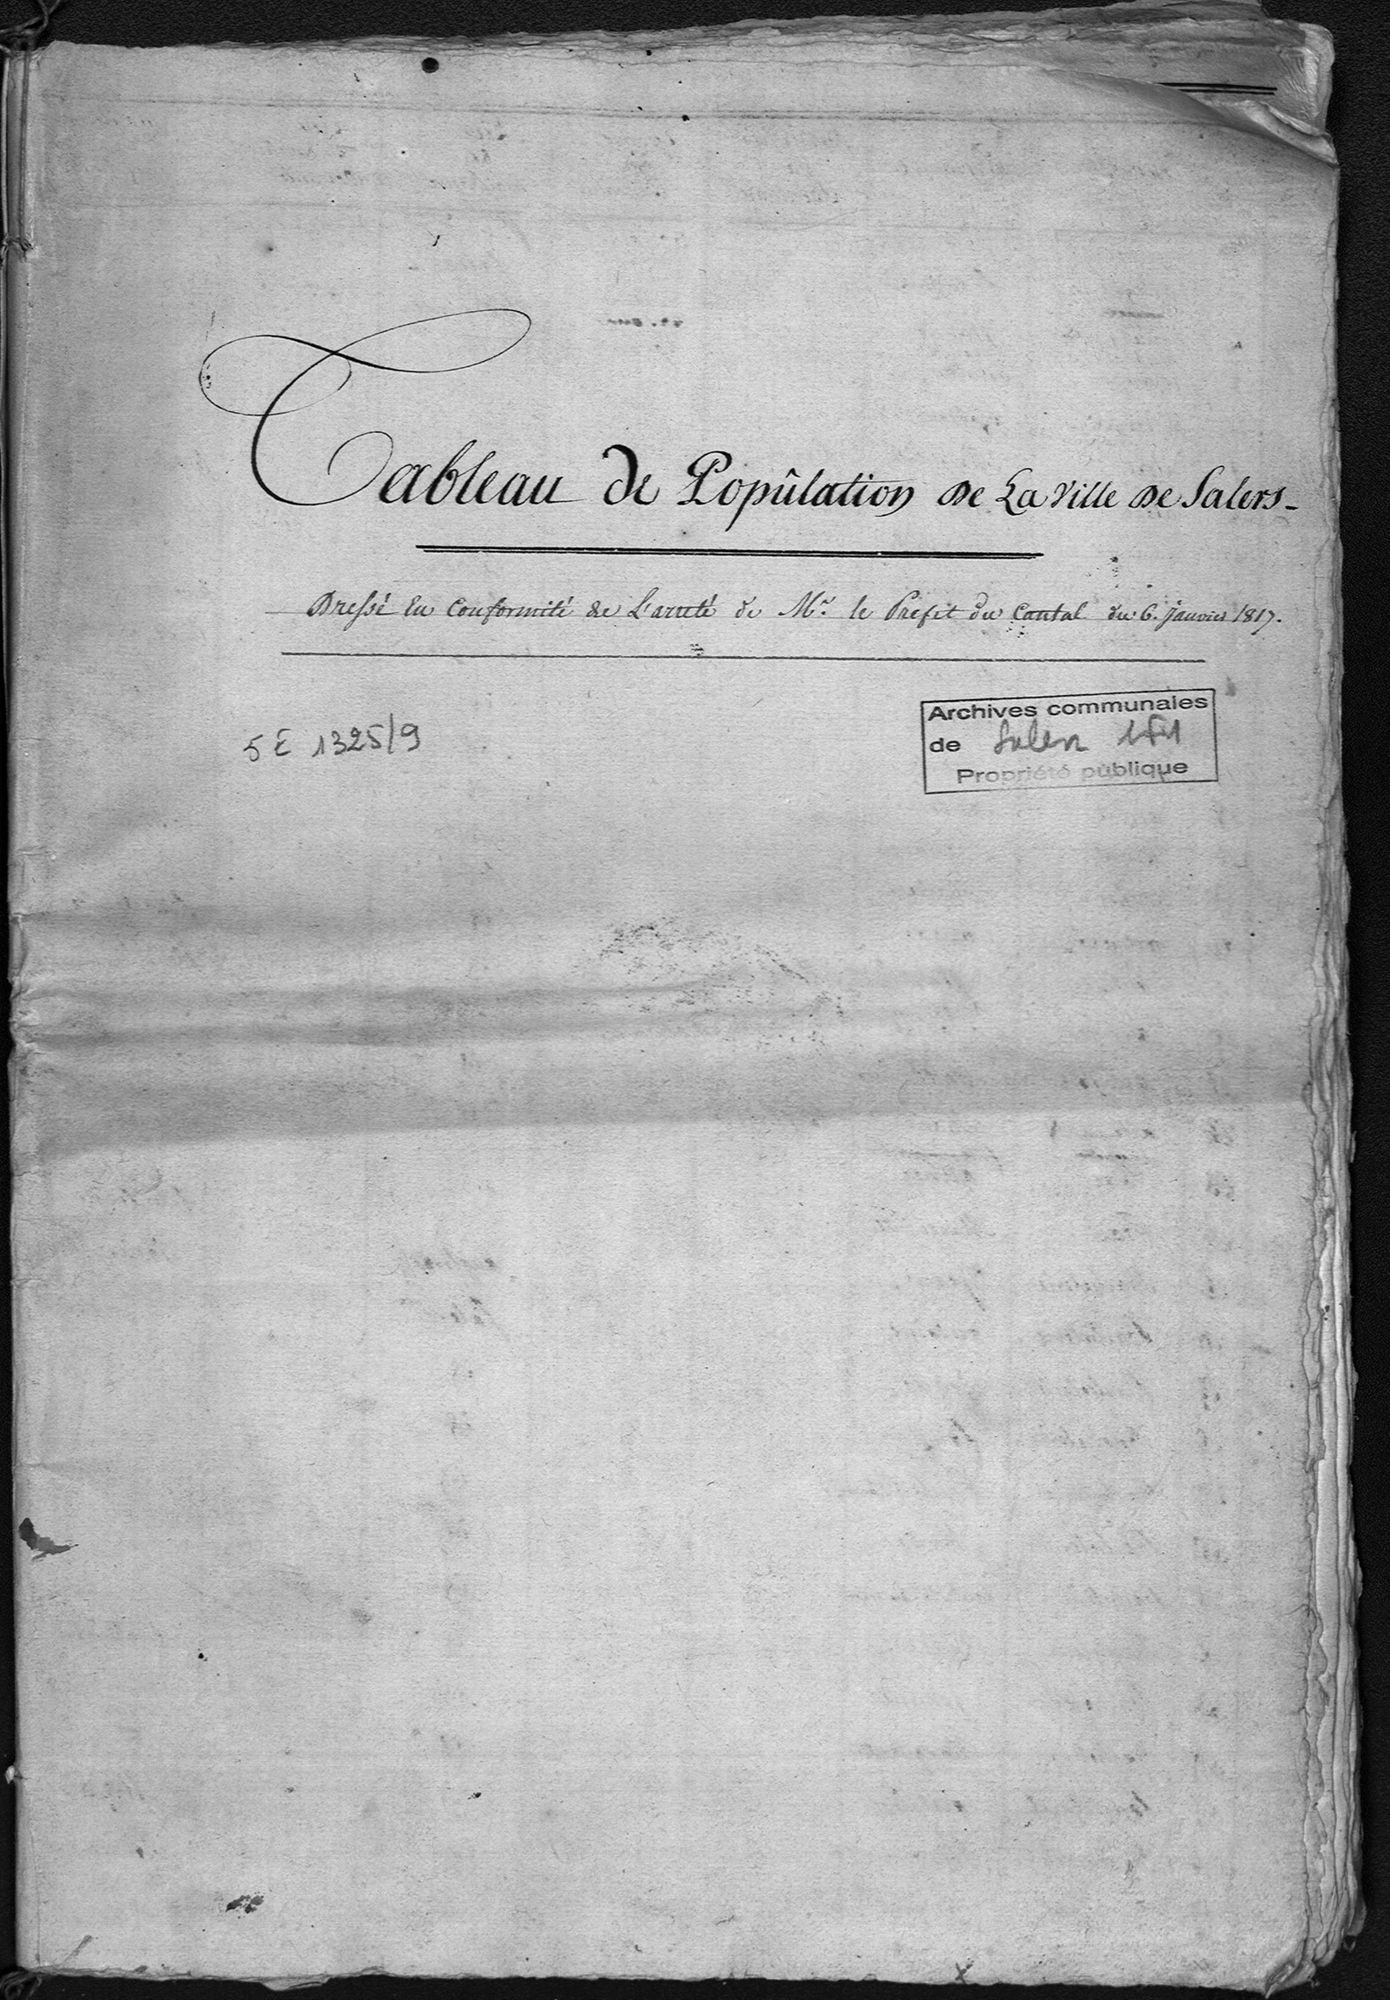 Tableau de Popûlation de La Ville de Salers-
Dressé En Conformité de L'arreté de Mr. le Préfet du Cantal du 6. Janvier 1817.
5 E 1325/9
Archives communales
de Salers 1F1
Propriété publique